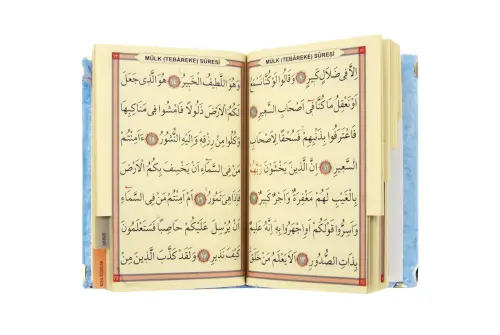 MÜLK (TEBÂREKE) SÛRESİ
اِلَّا فٖى ضَلَالٍ كَبٖيرٍ ﴿٩﴾ وَقَالُوا لَوْ كُنَّا نَسْمَعُ
اَوْ نَعْقِلُ مَا كُنَّا فٖى اَصْحَابِ السَّعٖيرِ ﴿١٠﴾
فَاعْتَرَفُوا بِذَنْبِهِمْ فَسُحْقًا لِاَصْحَابِ
السَّعٖيرِ ﴿١١﴾ اِنَّ الَّذٖينَ يَخْشَوْنَ رَبَّهُمْ
بِالْغَيْبِ لَهُمْ مَغْفِرَةٌ وَاَجْرٌ كَبٖيرٌ ﴿١٢﴾
وَاَسِرُّوا قَوْلَكُمْ اَوِ اجْهَرُوا بِهٖ اِنَّهُ عَلٖيمٌ
بِذَاتِ الصُّدُورِ ﴿١٣﴾ اَلَا يَعْلَمُ مَنْ خَلَقَ
MÜLK (TEBÂREKE) SÛRESİ
وَهُوَ اللَّطٖيفُ الْخَبٖيرُ ﴿١٤﴾ هُوَ الَّذٖى جَعَلَ
لَكُمُ الْاَرْضَ ذَلُولًا فَامْشُوا فٖى مَنَاكِبِهَا
وَكُلُوا مِنْ رِزْقِهٖ وَاِلَيْهِ النُّشُورُ ﴿١٥﴾ ءَاَمِنْتُمْ
مَنْ فِى السَّمَاءِ اَنْ يَخْسِفَ بِكُمُ الْاَرْضَ
فَاِذَا هِىَ تَمُورُ ﴿١٦﴾ اَمْ اَمِنْتُمْ مَنْ فِى السَّمَاءِ
اَنْ يُرْسِلَ عَلَيْكُمْ حَاصِبًا فَسَتَعْلَمُونَ
كَيْفَ نَذٖيرِ ﴿١٧﴾ وَلَقَدْ كَذَّبَ الَّذٖينَ مِنْ